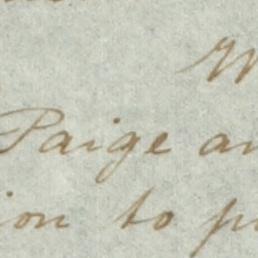 Paige an
ion to p